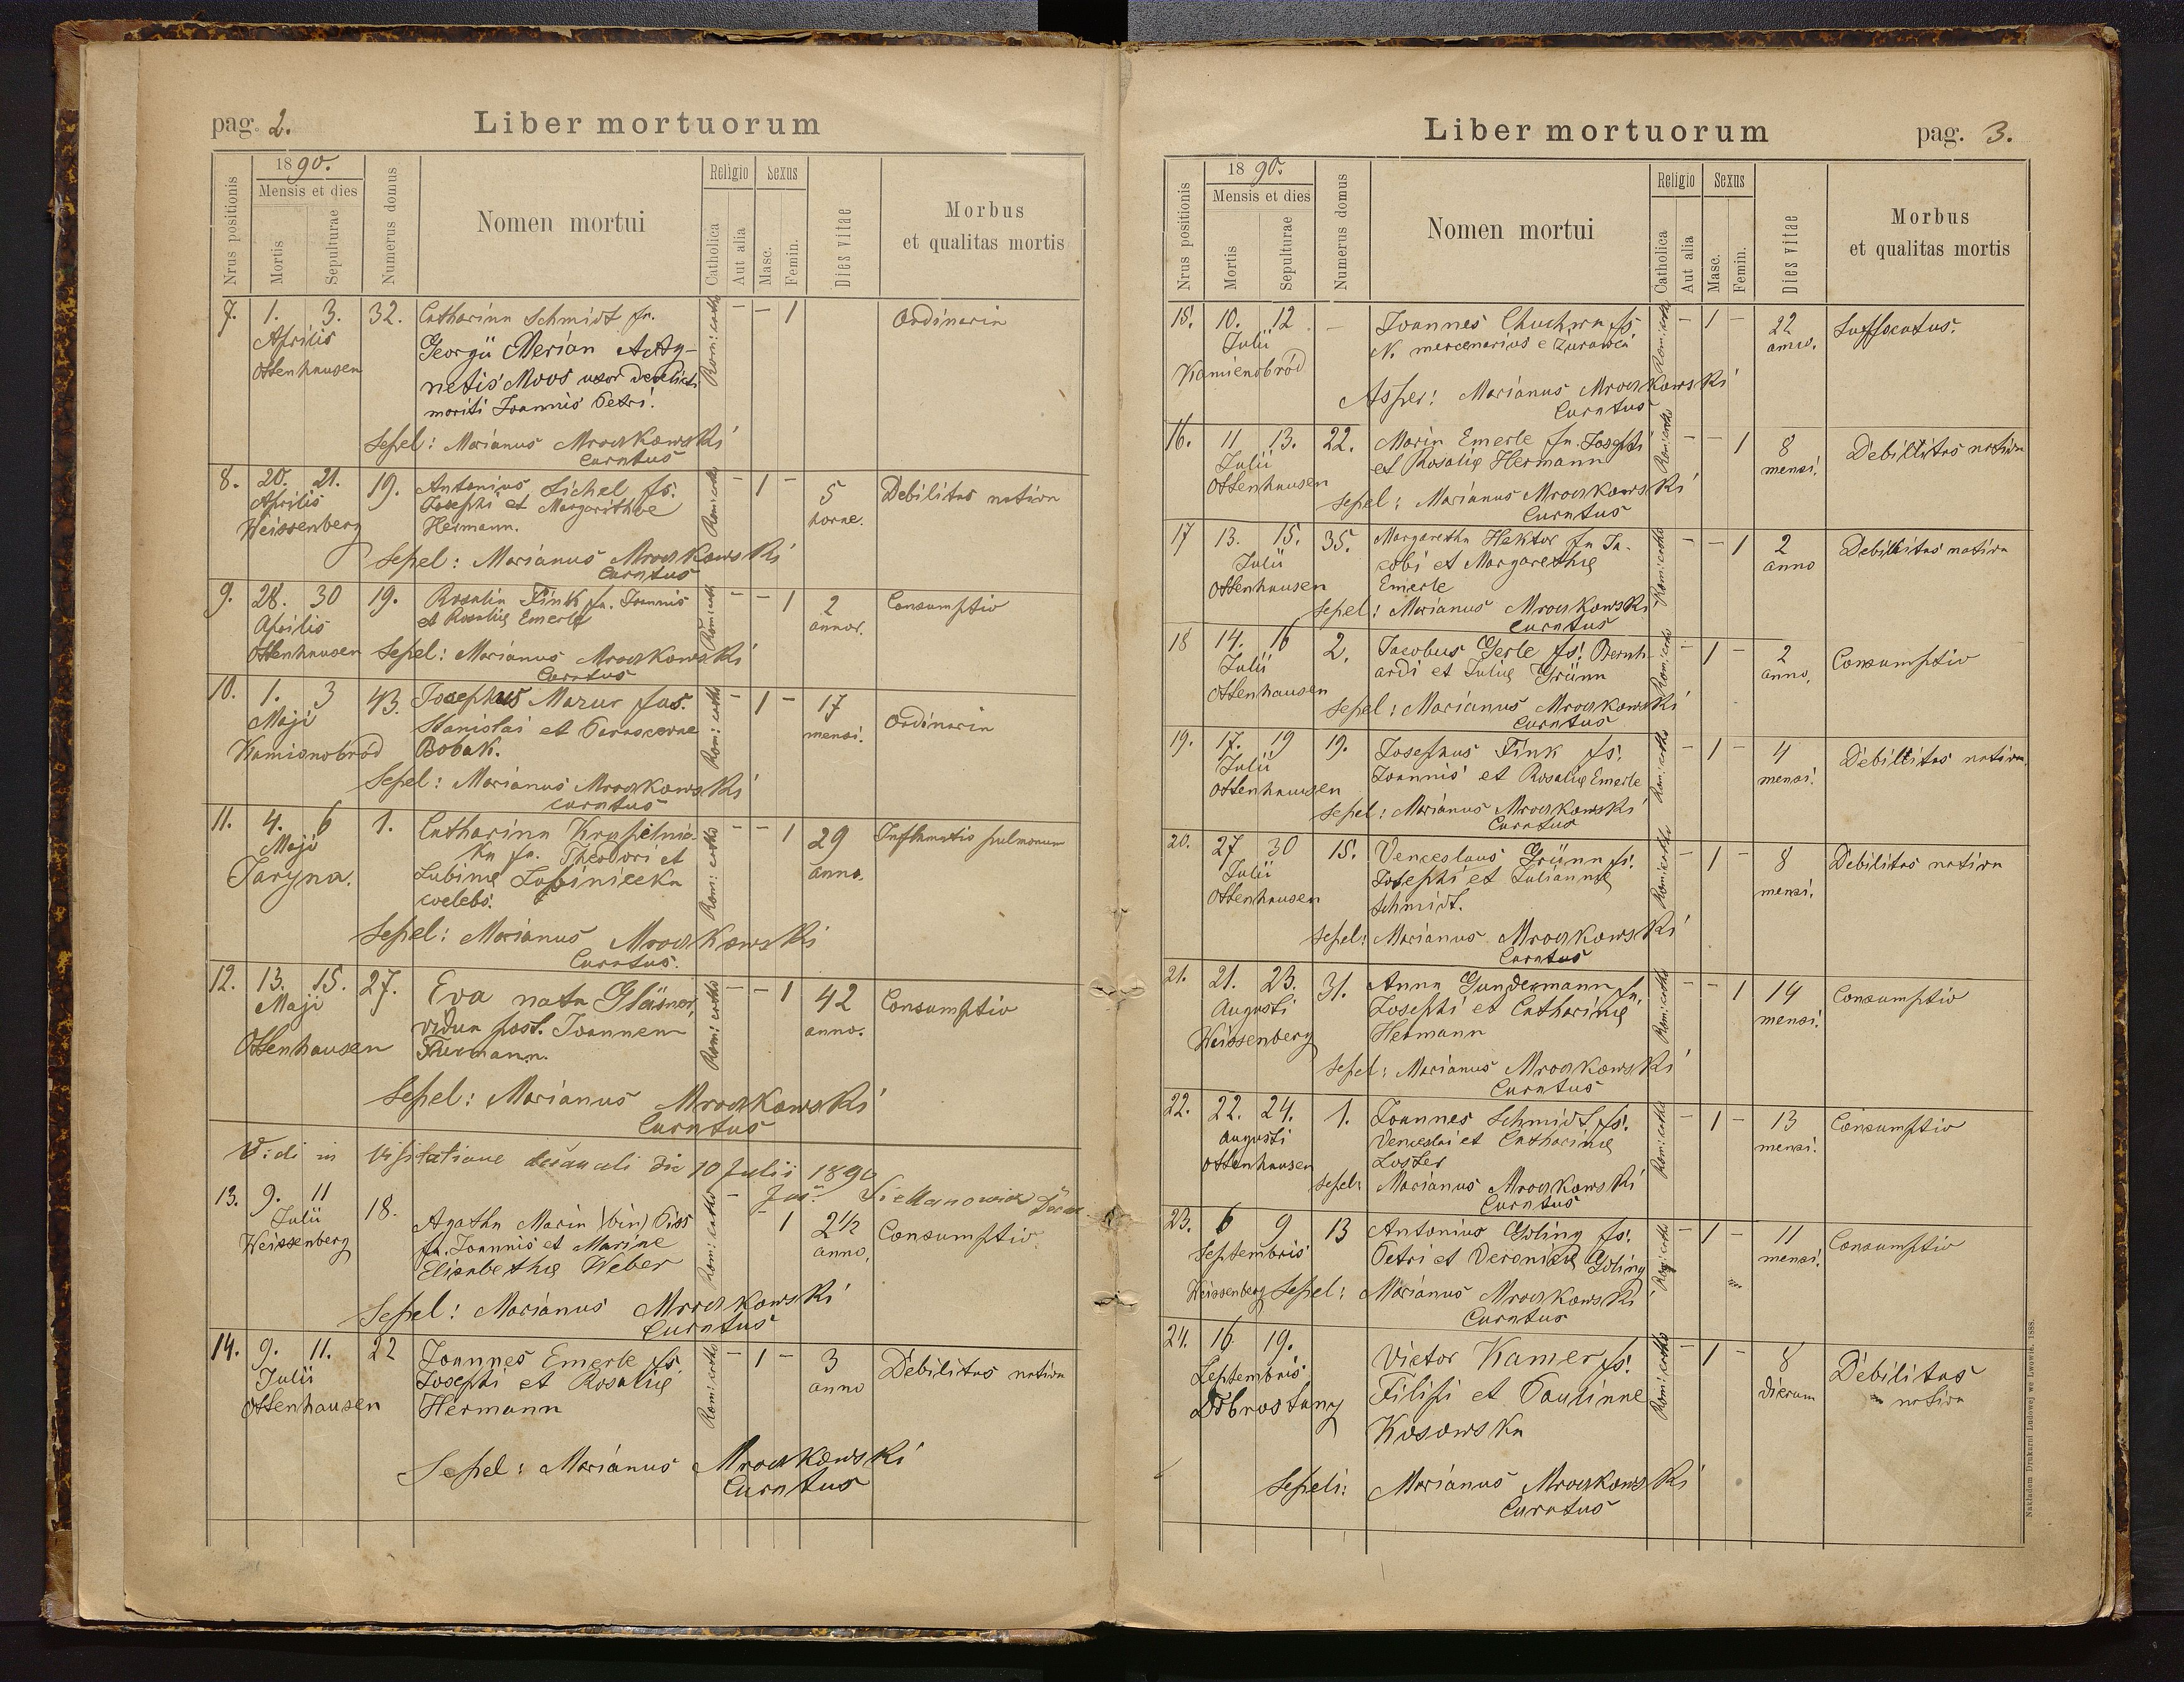 pag. 2.
Liber mortuorum
Nrus positionis
1890.
Mensis et dies
Mortis
Sepulturae
Numerus domus
Nomen mortui
Religio
Catholica
Aut alia
Sexus
Masc.
Femin.
Dies vitae
Morbus
et qualitas mortis
7. 1. 3. 32. Catharina Schmidt fa. Rom: cath: - - 1 Ordinaria
Aprilis Georgii Merian et Ag-
Ottenhausen netis Moos uxor derelicti
mariti Joannis Petri.
Sepel: Marianus Mroczkowski
Curatus
8. 20. 21. 19. Antonius Sichel fs. Rom: cath: - 1 - 5 Debilitas nativa
Aprilis Josephi et Margarithae horae.
Weissenberg Hermann.
Sepel: Marianus Mroczkowski
Curatus
9. 28. 30 19. Rosalia Fink fa. Joannis Rom: cath - - 1 2 Consumptio
Aprilis et Rosalię Emerle annor.
Ottenhausen Sepel: Marianus Mroczkowski
Curatus
10. 1. 3 43. Josephus Mazur fus. Rom: cath: - 1 - 17 Ordinaria
Maji Stanislai et Parascevae mensi.
Kamienobród Bobak.
Sepel: Marianus Mroczkowski
Curatus
11. 4. 6 1. Catharina Krupelnic- Rom: cath: - - 1 29 Inflamatio pulmonum
Maji ka fa. Theodori et anno.
Jaryna. Lubinę
coelebs.
Sepel: Marianus Mroczkowski
Curatus.
12. 13. 15. 27. Eva nata Gläsner, Rom: cath: - - 1 42 Consumptio
Maji vidua post. Joannem anno.
Ottenhausen Furmann.
Sepel: Marianus Mroczkowski
Curatus
Vidi in visitatione decanali die 10 Julii 1890
13. 9. 11 18. Agatha Maria (bin) Piss Rom: cath: - - 1 2½ Consumptio
Julii fa. Joannis et Mariae anno.
Weissenberg Elisabethę Weber
Sepel: Marianus Mroczkowski
Curatus
14. 9. 11. 22 Joannes Emerle fs. Rom: cath: - 1 - 3 Debilitas nativa
Julii Josephi et Rosalię anno
Ottenhausen Hermann
Sepel: Marianus Mroczkowski
Curatus
Liber mortuorum
pag. 3.
Nrus positionis
1890.
Mensis et dies
Mortis
Sepulturae
Numerus domus
Nomen mortui
Religio
Catholica
Aut alia
Sexus
Masc.
Femin.
Dies vitae
Morbus
et qualitas mortis
15. 10. 12 - Joannes Chuchra fs. Rom: cath: - 1 - 22 Suffocatus.
Julii N. mercenarius e Żurawci anno.
Kamienobród
Asper: Marianus Mroczkowski
Curatus
16. 11 13. 22. Maria Emerle fa. Josephi Rom: cath: - - 1 8 Debilitas nativa
Julii et Rosalię Hermann mensi.
Ottenhausen
Sepel: Marianus Mroczkowski
Curatus
17 13. 15. 35. Margaretha Hektor fa Ja- Rom: cath: - - 1 2 Debilitas nativa
Julii cobi et Margarethę anno
Ottenhausen Emerle
Sepel: Marianus Mroczkowski
Curatus
18 14. 16 2. Jacobus Gerle fs: Bernh- Rom: cath: - 1 - 2 Consumptio
Julii ardi et Julię Grünn anno.
Ottenhausen
Sepel: Marianus Mroczkowski
Curatus
19. 17. 19 19. Josephus Fink fs. Rom: cath: - 1 - 4 Debilitas nativa
Julii Joannis et Rosalię Emerle mensi.
Ottenhausen
Sepel: Marianus Mroczkowski
Curatus
20. 27 30 15. Venceslaus Grünn fs. Rom: cath: - 1 - 8 Debilitas nativa
Julii Josephi et Juliannę mensi.
Ottenhausen Schmidt.
Sepel: Marianus Mroczkowski
Curatus
21. 21. 23. 31. Anna Gundermann fa. Rom: cath: - - 1 14 Consumptio
Augusti Josephi et Catharinę mensi.
Weissenberg Hermann
Sepel: Marianus Mroczkowski
Curatus
22. 22. 24. 1. Joannes Schmidt fs. Rom: cath: - 1 - 13 Consumptio
Augusti Venceslai et Catharinę mensi.
Ottenhausen Loster
Sepel: Marianus Mroczkowski
Curatus
23. 6 9 13 Antonius Göling fs. Rom: cath: - 1 - 11 Consumptio
Septembris Petri et Veronicę Göling mensi.
Weissenberg Sepel: Marianus Mroczkowski
Curatus
24. 16. 19. Victor Kamer fs. Rom: cath: - 1 - 8 Debilitas
Septembris Filipi et Paulinae dierum nativa
Dobrostany Kosowska
Sepeli: Marianus Mroczkowski
Curatus
Nakładem Drukarni Ludowej we Lwowie. 1888.